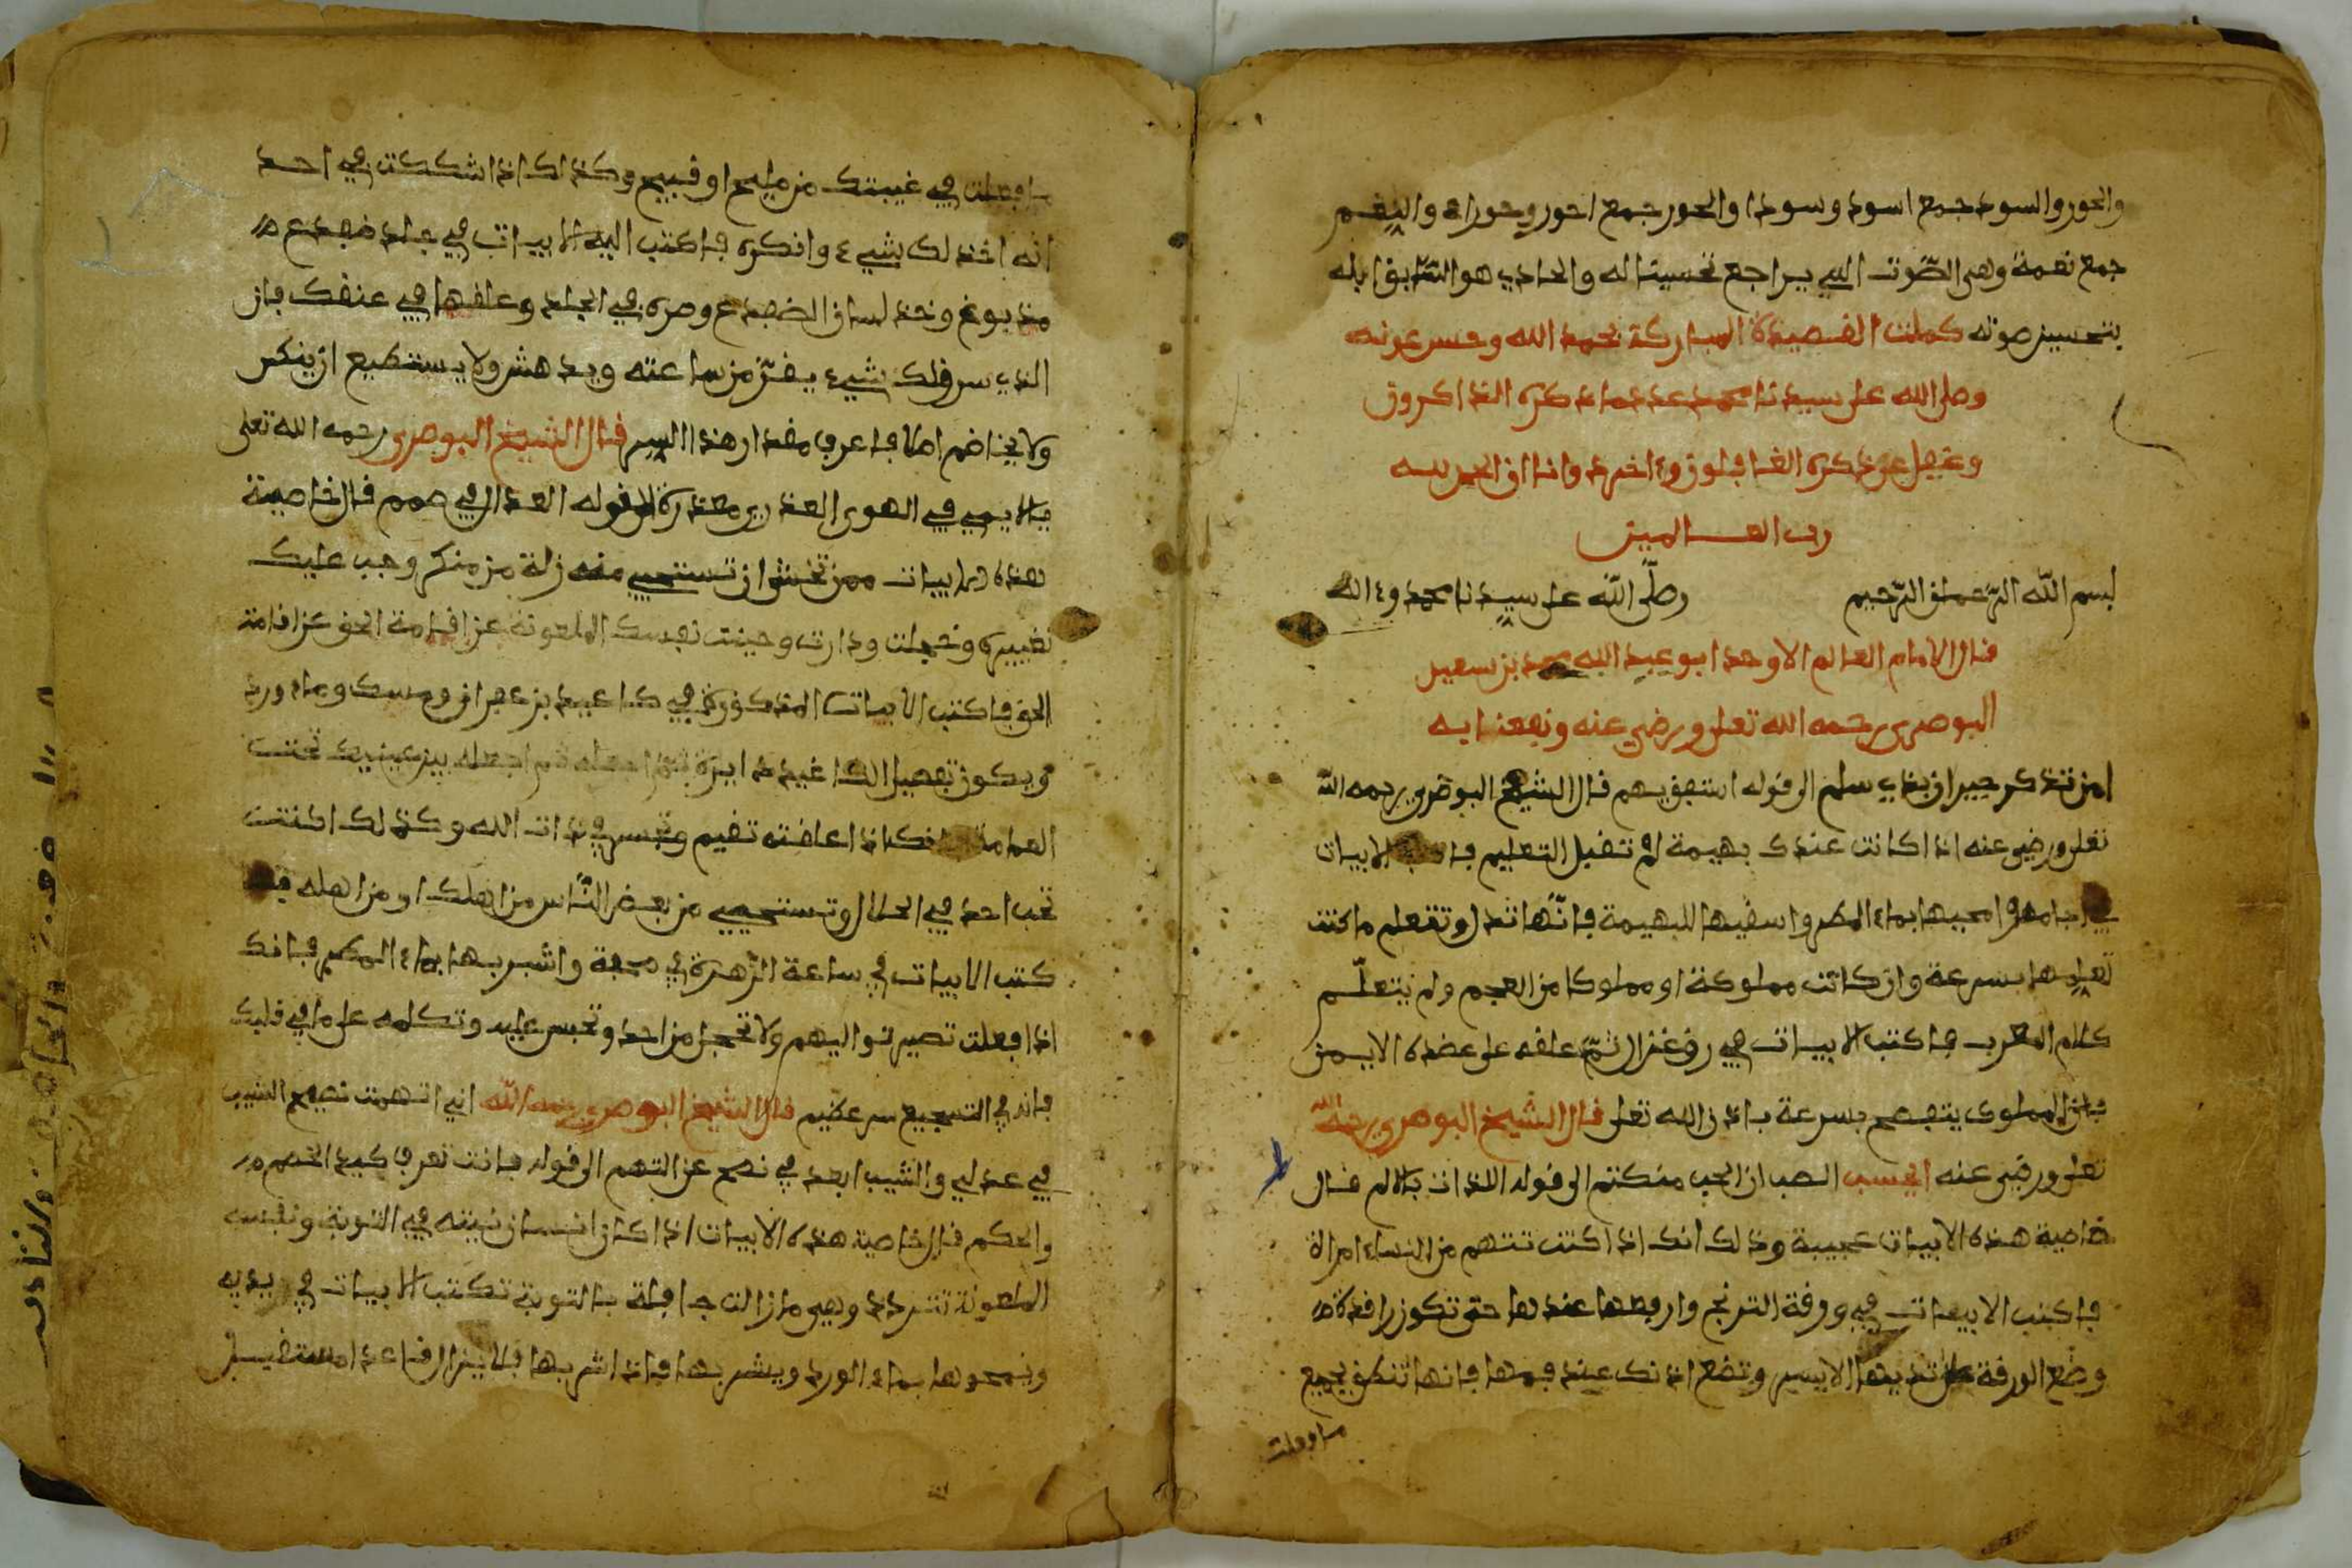 والحور والسود جمع اسود وسودا والحور جمع احور وحوراء والنغم
جمع نغمة وهى الصّوت الذي يراجع تحسينا له والحادي هو السّايق ابله
بتحسين صوته كملت القصيدة المباركة بحمد الله وحسن عونه
وصلى الله على سيدنا محمد عدد ما ذكره الذاكرون
وغفل عن ذكره الغافلون وءاخر دعوانا ان الحمد لله
رب العالمين
بسم الله الرّحمان الرّحيم وصلّى الله على سيدنا محمد وءاله
قال الامام العالم الاوحد ابو عبد الله محمد بن سعيد
البوصري رحمه الله تعلى ورضي عنه ونفعنا به
امن تذكر جيران بذي سلم الى قوله استفق يهم قال الشيخ البوصري رحمه الله
تعلى ورضي عنه اذا كانت عندك بهيمة لم تقبل التعليم الابيات
في امحيها بماء المطر واسقيها للبهيمة فانّها تذل وتتعلم ما كنت
تعلمها بسرعة وان كانت مملوكة او مملوكا من العجم ولم يتعلّم
كلام العرب فاكتب الابيات في رق غزال ثمّ علقه على عضده الايمن
فان المملوك يتفصح بسرعة باذن الله تعلى قال الشيخ البوصري رحمه الله
تعلى ورضي عنه ايحسب الصب ان الحب منكتم الى قوله اللذات بالالم قال
خاصية هذه الابيات عجيبة وذلك انك اذا كنت تتهم من النساء امراة
فاكتب الابيات في ورقة الترنج وارفعها عندها حتى تكون راقدة
وضع الورقة على ثديها الايسر وتضع اذنك عند فمها فانها تنطق بجميع
ما فعلت
ما فعلت في غيبتك من مليح او قبيح وكذلك اذا شككت في احد
انه اخذ لك شيء وانكره فاكتب اليه الابيات في جلد ضفدع
مدبوغ وخذ لسان الضفدع وصره في الجلد وعلقها في عنقك فان
الذي سرق لك شيء يفزّ من ساعته ويدهش ولا يستطيع ان ينكر
ولا يخاصم اصلا فاعرف مقدار هذا السر قال الشيخ البوصري رحمه الله تعلى
يا لايمي في الهوى العذري معذرة الى قوله العذال في صمم قال خاصية
هذه الابيات ممن تخشى ان تستحيي منه زلة من منكر وجب عليك
تغييره وخجلت ودارت وجبنت نفسك الملعونة عن اقامة الحق عن اقامة
الحق فاكتب الابيات المذكورة في كاغيد بزعفران ومسك وماء ورد
ويكون تفصيل الكاغيد دايرة ثم اجعله بين عينيك تحت
العمامة فانك اذا علقته تقيم وتجسر في ذات الله وكذلك ان كنت
تحب احد في الحلال وتستحيي من بعض النّاس من اهلك او من اهله
كتب الابيات في ساعة الزّهرة في صحفة واشربها بماء المطر فانك
اذا فعلت تصير تواليهم ولا تخجل من احد وتجسر عليه وتكلمه على ما في قلبك
فانه في التسجيع سر عظيم قال الشيخ البوصري رحمه الله اني اتهمت نصيح الشيب
في عذلي والشيب ابعد في نصح عن التهم الى قوله فانت تعرف كيد الخصم
والحكم قال خاصية هذه الابيات اذا كان انسان نيته في التوبة ونفسه
الملعونة تتردد وهى ما زالت جافلة بالتوبة تكتب الابيات في يديه
ويمحوها بماء الورد ويشربها فاذا شربها فلا يزال قاعدا مستقبل